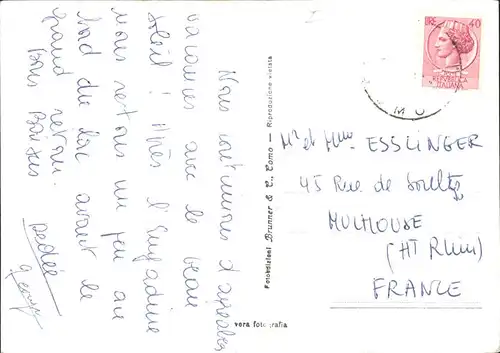 Nous continuons d'agréables
vacances avec le beau
soleil! Après l'Engadine
nous restons un peu au
bord du lac avant le
grand retour.
Bons Baisers
Dédée
Georg
I
REPVBBLICA
ITALIANA
40
Fotoedizioni Brunner & C., Como - Riproduzione vietata
vera fotografia
Mr et Mme ESSLINGER
45 Rue de Soultz
MULHOUSE
(HT Rhin)
FRANCE